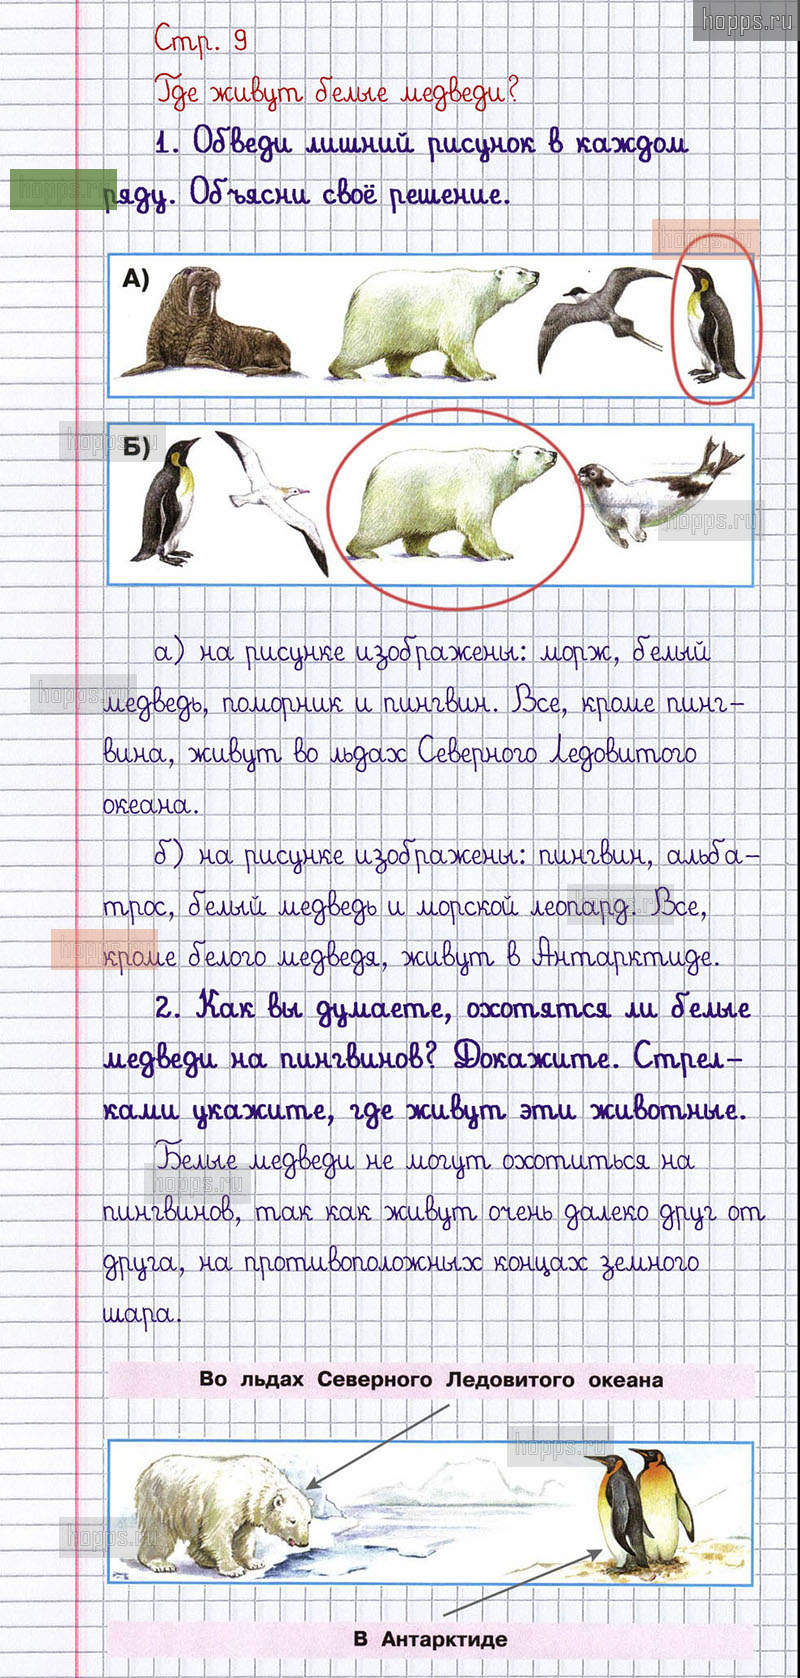 hopps.ru
Стр. 9
Где живут белые медведи?
1. Обведи лишний рисунок в каждом
hopps.ru
ряду. Объясни своё решение.
hopps.ru
А)
hopps.ru
Б)
hopps.ru
а) на рисунке изображены: морж, белый
hopps.ru
медведь, поморник и пингвин. Все, кроме пинг-
вина, живут во льдах Северного Ледовитого
океана.
б) на рисунке изображены: пингвин, альба-
hopps.ru
трос, белый медведь и морской леопард. Все,
hopps.ru
кроме белого медведя, живут в Антарктиде.
2. Как вы думаете, охотятся ли белые
медведи на пингвинов? Докажите. Стрел-
ками укажите, где живут эти животные.
Белые медведи не могут охотиться на
hopps.ru
пингвинов, так как живут очень далеко друг от
друга, на противоположных концах земного
шара.
Во льдах Северного Ледовитого океана
hopps.ru
hopps.ru
В Антарктиде